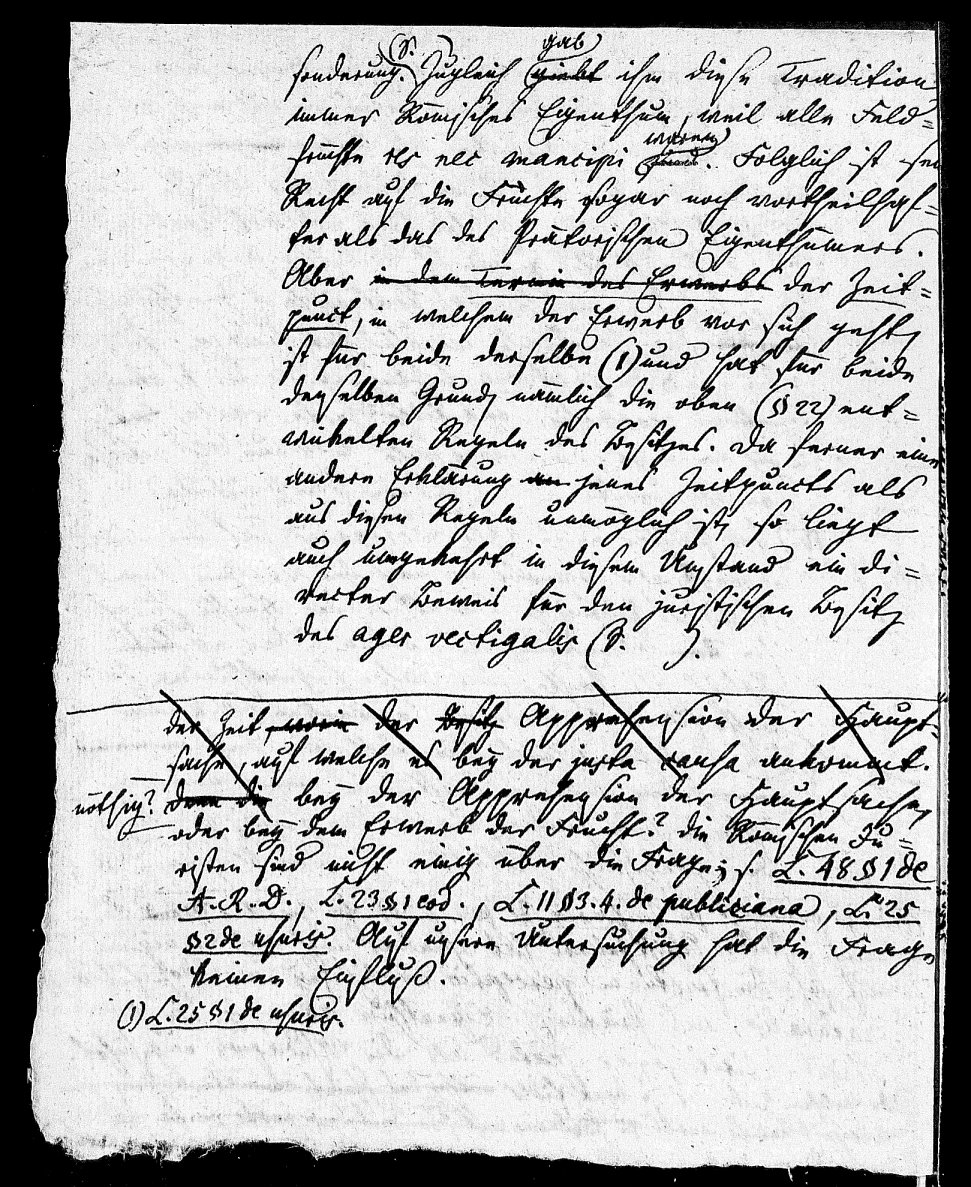 (S. ) gab
sonderung. Zugleich giebt ihm diese Tradition
immer Römisches Eigenthum, weil alle Feld=
früchte res nec mancipi waren. Folglich ist sein
Recht auf die Früchte sogar noch vortheilhaf=
ter als das des Prätorischen Eigenthümers.
Aber in dem Termin des Erwerbs der Zeit=
punct, in welchem der Erwerb vor sich geht,
ist für beide derselbe (1) und hat für beide
denselben Grund, nämlich die oben (§ 22) ent=
wickelten Regeln des Besitzes. Da ferner eine
andere Erklärung jenes Zeitpuncts als
aus diesen Regeln unmöglich ist, so liegt
auch umgekehrt in diesem Umstand ein di=
recter Beweis für den juristischen Besitz
des ager vectigalis (S. ).
der Zeit, worin der Besitz Apprehension der Haupt=
sache, auf welche es bey der justa causa ankommt.
nöthig? denn die bey der Apprehension der Hauptsache,
oder bey dem Erwerb der Frucht? die Römischen Ju=
risten sind nicht einig über die Frage; s. L. 48 § 1 de
A. R. D., L. 23 § 1 eod., L. 11 § 3. 4. de publiciana, L. 25
§ 2 de usuris. Auf unsere Untersuchung hat die Frage
keinen Einfluß.
(1) L. 25 § 1 de usuris.